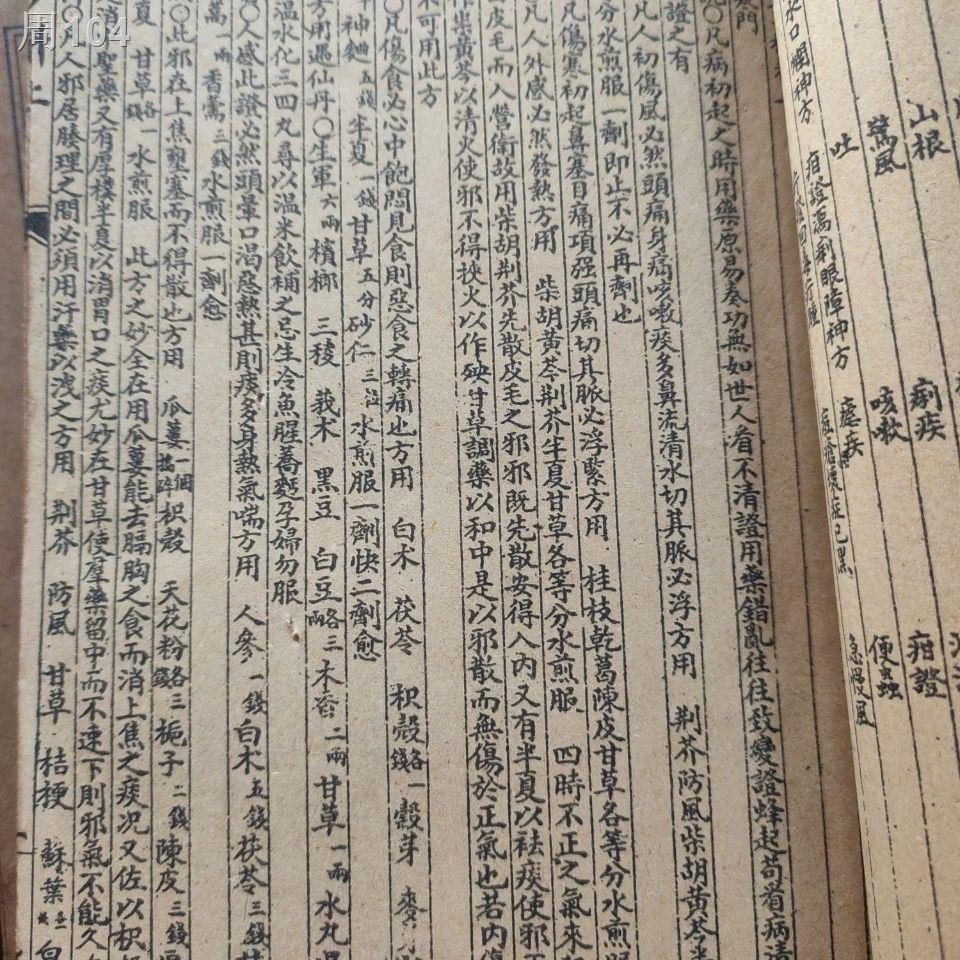 周 104
山根 痢疾 疳證
驚風 咳嗽 便蟲
吐 瘧疾 急慢風
疳證瀉痢眼障神方
水口爛神方
寒門
○凡病初起之時用藥原易奏功無如世人看不清證用藥錯亂往往致變證蜂起苟看病清
證之有
凡人初傷風必然頭痛身痛咳嗽痰多鼻流清水切其脈必浮方用 荊芥防風柴胡黃芩半
分水煎服一劑即止不必再劑也
凡傷寒初起鼻塞目痛項强頭痛切其脈必浮緊方用 桂枝乾葛陳皮甘草各等分水煎
凡人外感必然發熱方用 柴胡黃芩荊芥半夏甘草各等分水煎服 四時不正之氣來
皮毛而入營衛故用柴胡荊芥先散皮毛之邪邪既先散安得入內又有半夏以袪痰使邪
柴黃芩以清火使邪不得挾火以作殃甘草調藥以和中是以邪散而無傷於正氣也若內傷
不可用此方
凡傷食必心中飽悶見食則惡食之轉痛也方用 白朮 茯苓 枳殼各一錢 穀芽 麥
神麯五錢 半夏一錢 甘草五分 砂仁三粒 水煎服一劑快二劑愈
方用遇仙丹○生軍六兩 檳榔 三稜 莪朮 黑豆 白豆各三兩 木香二兩 甘草一兩 水丸
溫水化三四丸尋以溫米飲補之忌生冷魚腥蕎麵孕婦勿服
○人感此證必然頭暈口渴惡熱甚則痰多身熱氣喘方用 人參一錢 白朮五錢 茯苓三錢
一兩 香薷三錢 水煎服一劑愈
○此邪在上焦壅塞而不得散也方用 瓜蔞一個搗碎 枳殼 天花粉各三錢 梔子二錢 陳皮三錢
夏 甘草各一錢 水煎服 此方之妙全在用瓜蔞能去膈胸之食而消上焦之痰況又佐以枳
消聖藥又有厚樸半夏以消胃口之痰尤妙在甘草使羣藥留中而不速下則邪氣不能久
○凡人邪居腠理之間必須用汗藥以洩之方用 荊芥 防風 甘草 桔梗 蘇葉各一錢 白